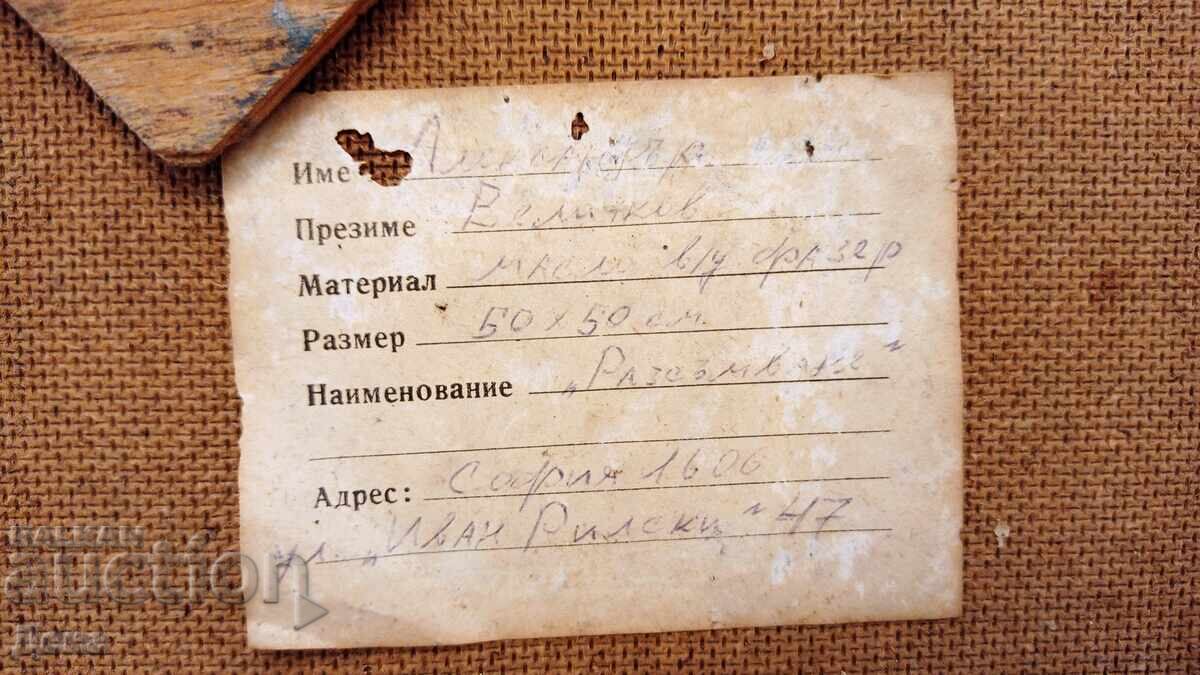 Име Александър
Презиме Величков
Материал масло в/у фазер
Размер 50 x 50 см
Наименование „Разсъмване"
Адрес: София 1606
ул. „Иван Рилски" 47
BALKAN
auction
Цена